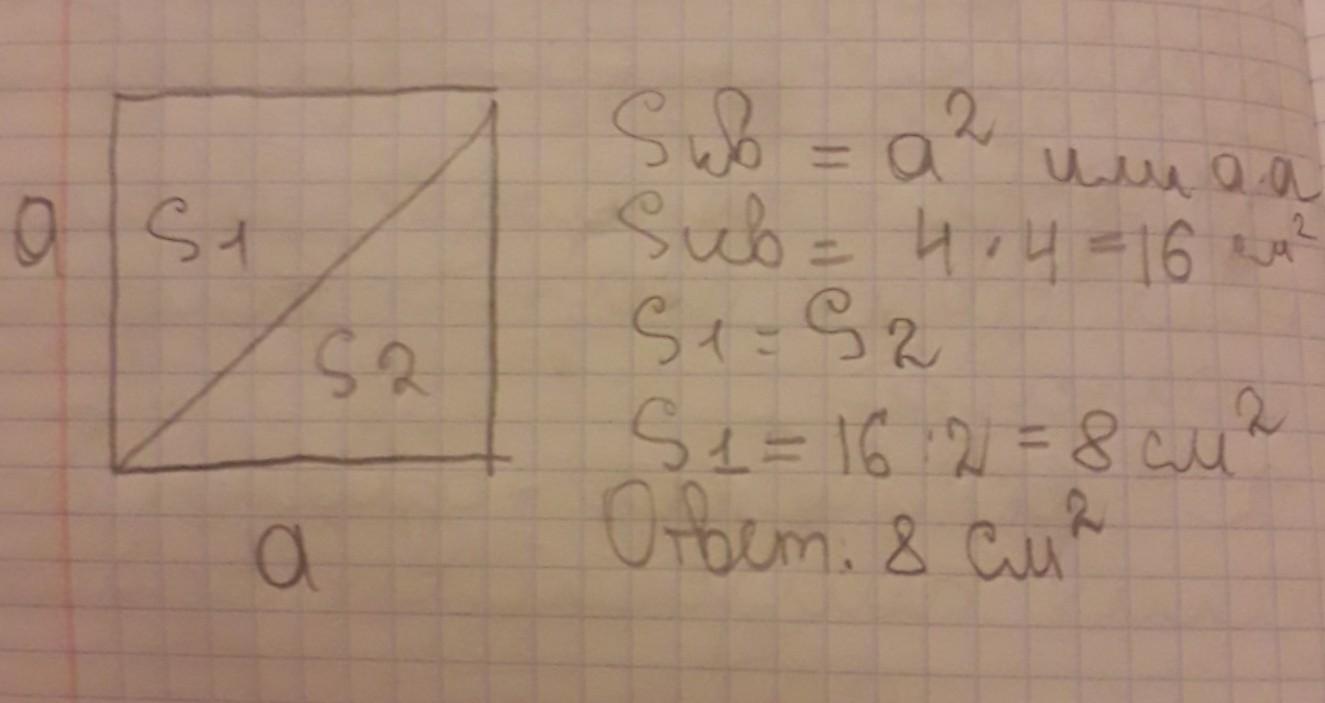 a
S1
S2
a
Sкв = a² или a·a
Sкв = 4 · 4 = 16 см²
S1 = S2
S1 = 16 : 2 = 8 см²
Ответ. 8 см²